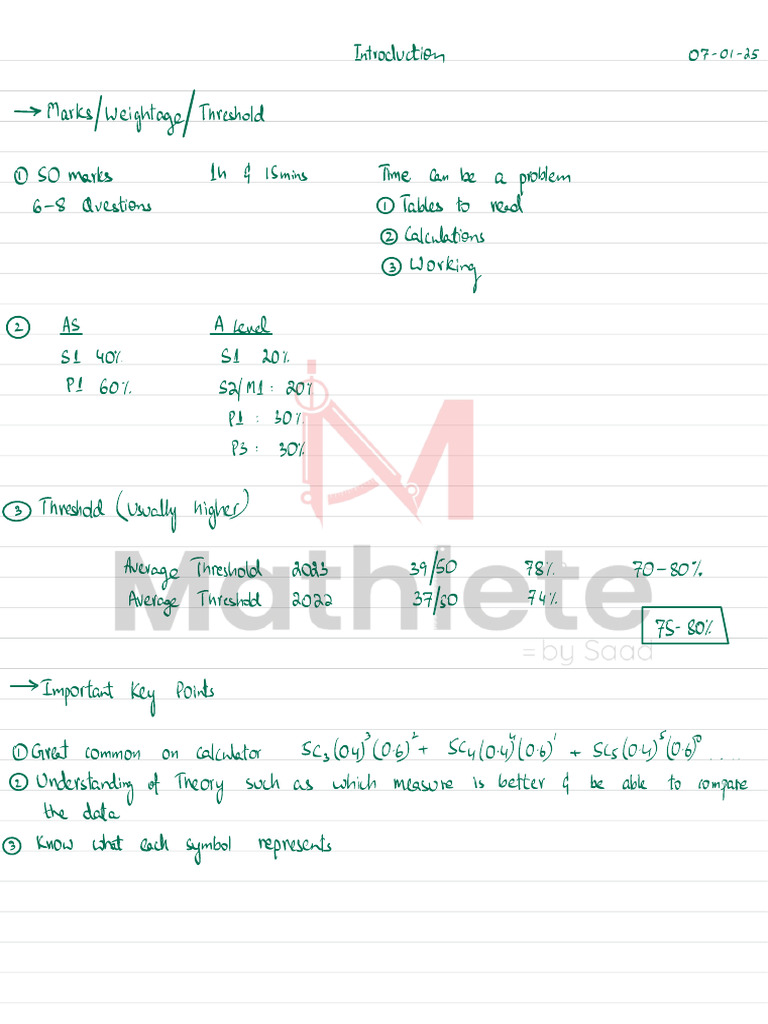 Introduction 07-01-25
→ Marks/Weightage/Threshold
① 50 marks 1h & 15mins Time can be a problem
6-8 Questions ① Tables to read
② Calculations
③ Working
② AS A Level
S1 40% S1 20%
P1 60% S2/M1: 20%
P1: 30%
P3: 30%
③ Threshold (usually higher)
Average Threshold 2023 39/50 78% 70-80%
Average Threshold 2022 37/50 74%
75-80%
Mathlete
=by Saad
→ Important Key Points
① Great common on calculator 5C₃(0.4)³(0.6)² + 5C₄(0.4)⁴(0.6)¹ + 5C₅(0.4)⁵(0.6)⁰ .....
② Understanding of Theory such as which measure is better & be able to compare
the data
③ Know what each symbol represents